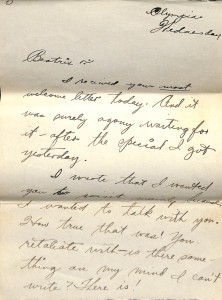 Olympic
Wednesday
Beatrice
I received your most
welcome letter today. And it
was surely agony waiting for
it after the special I got
yesterday.
I wrote that I wanted
you to
I wanted to talk with you.
How true that was! You
retaliate with - is there some
thing on my mind I can't
write? There is!